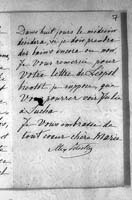 Dans huit jours le médecin
décidera, si je dois prendre
des bains encore ou non.
Je vous remercie pour
votre lettre de Léopol
bientôt je suppose, que
Vous pourrez voir
de Sacha
Je Vous embrasse du
tout coeur chère Marie